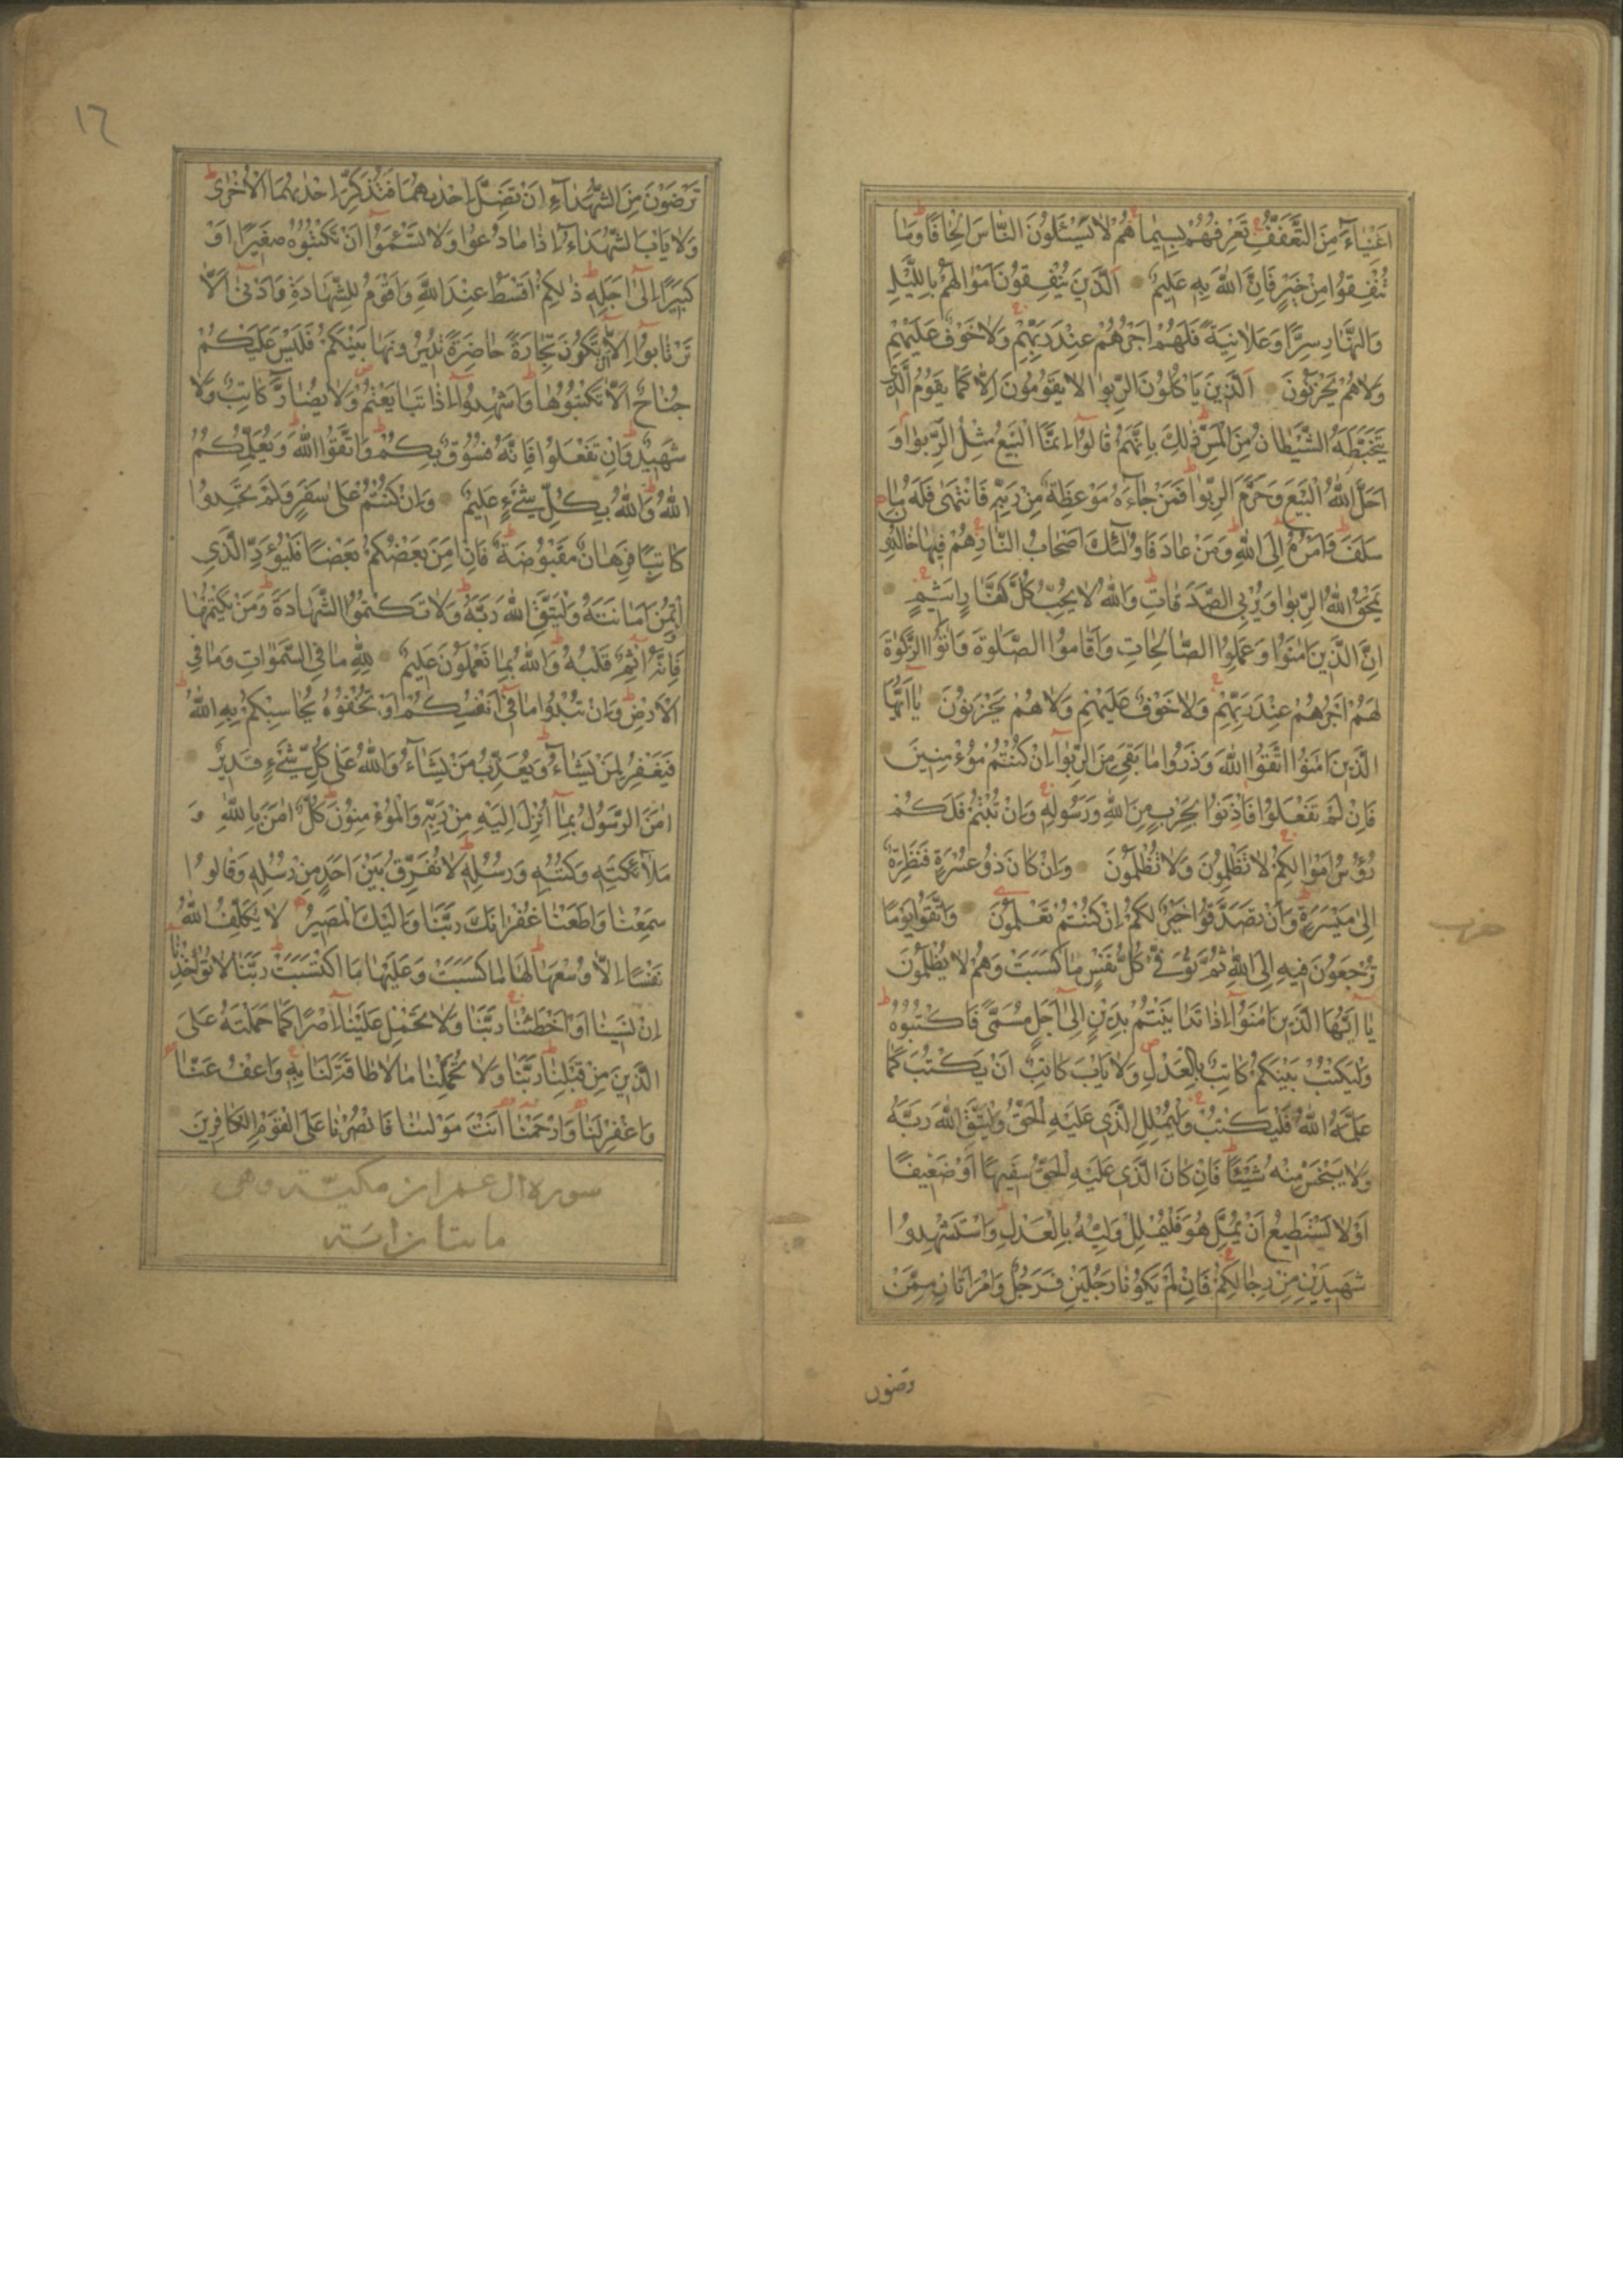 اَغْنِيَاءَ مِنَ التَّعَفُّفِ تَعْرِفُهُمْ بِسِيمَاهُمْ لَا يَسْئَلُونَ النَّاسَ اِلْحَافًا وَمَا
تُنْفِقُوا مِنْ خَيْرٍ فَاِنَّ اللهَ بِهِ عَلِيمٌ اَلَّذِينَ يُنْفِقُونَ اَمْوَالَهُمْ بِاللَّيْلِ
وَالنَّهَارِ سِرًّا وَعَلَانِيَةً فَلَهُمْ اَجْرُهُمْ عِنْدَ رَبِّهِمْ وَلَا خَوْفٌ عَلَيْهِمْ
وَلَا هُمْ يَحْزَنُونَ اَلَّذِينَ يَاْكُلُونَ الرِّبٰوا لَا يَقُومُونَ اِلَّا كَمَا يَقُومُ الَّذِي
يَتَخَبَّطُهُ الشَّيْطَانُ مِنَ الْمَسِّ ذٰلِكَ بِاَنَّهُمْ قَالُوا اِنَّمَا الْبَيْعُ مِثْلُ الرِّبٰوا وَ
اَحَلَّ اللهُ الْبَيْعَ وَحَرَّمَ الرِّبٰوا فَمَنْ جَاءَهُ مَوْعِظَةٌ مِنْ رَبِّهِ فَانْتَهٰى فَلَهُ مَا
سَلَفَ وَاَمْرُهُ اِلَى اللهِ وَمَنْ عَادَ فَاُولٰئِكَ اَصْحَابُ النَّارِ هُمْ فِيهَا خَالِدُونَ
يَمْحَقُ اللهُ الرِّبٰوا وَيُرْبِي الصَّدَقَاتِ وَاللهُ لَا يُحِبُّ كُلَّ كَفَّارٍ اَثِيمٍ
اِنَّ الَّذِينَ اٰمَنُوا وَعَمِلُوا الصَّالِحَاتِ وَاَقَامُوا الصَّلٰوةَ وَاٰتَوُا الزَّكٰوةَ
لَهُمْ اَجْرُهُمْ عِنْدَ رَبِّهِمْ وَلَا خَوْفٌ عَلَيْهِمْ وَلَا هُمْ يَحْزَنُونَ يَا اَيُّهَا
الَّذِينَ اٰمَنُوا اتَّقُوا اللهَ وَذَرُوا مَا بَقِيَ مِنَ الرِّبٰوا اِنْ كُنْتُمْ مُؤْمِنِينَ
فَاِنْ لَمْ تَفْعَلُوا فَاْذَنُوا بِحَرْبٍ مِنَ اللهِ وَرَسُولِهِ وَاِنْ تُبْتُمْ فَلَكُمْ
رُؤُسُ اَمْوَالِكُمْ لَا تَظْلِمُونَ وَلَا تُظْلَمُونَ وَاِنْ كَانَ ذُو عُسْرَةٍ فَنَظِرَةٌ
اِلٰى مَيْسَرَةٍ وَاَنْ تَصَدَّقُوا خَيْرٌ لَكُمْ اِنْ كُنْتُمْ تَعْلَمُونَ وَاتَّقُوا يَوْمًا
حزب
تُرْجَعُونَ فِيهِ اِلَى اللهِ ثُمَّ تُوَفّٰى كُلُّ نَفْسٍ مَا كَسَبَتْ وَهُمْ لَا يُظْلَمُونَ
يَا اَيُّهَا الَّذِينَ اٰمَنُوا اِذَا تَدَايَنْتُمْ بِدَيْنٍ اِلٰى اَجَلٍ مُسَمًّى فَاكْتُبُوهُ
وَلْيَكْتُبْ بَيْنَكُمْ كَاتِبٌ بِالْعَدْلِ وَلَا يَاْبَ كَاتِبٌ اَنْ يَكْتُبَ كَمَا
عَلَّمَهُ اللهُ فَلْيَكْتُبْ وَلْيُمْلِلِ الَّذِي عَلَيْهِ الْحَقُّ وَلْيَتَّقِ اللهَ رَبَّهُ
وَلَا يَبْخَسْ مِنْهُ شَيْئًا فَاِنْ كَانَ الَّذِي عَلَيْهِ الْحَقُّ سَفِيهًا اَوْ ضَعِيفًا
اَوْ لَا يَسْتَطِيعُ اَنْ يُمِلَّ هُوَ فَلْيُمْلِلْ وَلِيُّهُ بِالْعَدْلِ وَاسْتَشْهِدُوا
شَهِيدَيْنِ مِنْ رِجَالِكُمْ فَاِنْ لَمْ يَكُونَا رَجُلَيْنِ فَرَجُلٌ وَامْرَاَتَانِ مِمَّنْ
رضون
١٦
تَرْضَوْنَ مِنَ الشُّهَدَاءِ اَنْ تَضِلَّ اِحْدٰيهُمَا فَتُذَكِّرَ اِحْدٰيهُمَا الْاُخْرٰى
وَلَا يَاْبَ الشُّهَدَاءُ اِذَا مَا دُعُوا وَلَا تَسْئَمُوا اَنْ تَكْتُبُوهُ صَغِيرًا اَوْ
كَبِيرًا اِلٰى اَجَلِهِ ذٰلِكُمْ اَقْسَطُ عِنْدَ اللهِ وَاَقْوَمُ لِلشَّهَادَةِ وَاَدْنٰى اَلَّا
تَرْتَابُوا اِلَّا اَنْ تَكُونَ تِجَارَةً حَاضِرَةً تُدِيرُونَهَا بَيْنَكُمْ فَلَيْسَ عَلَيْكُمْ
جُنَاحٌ اَلَّا تَكْتُبُوهَا وَاَشْهِدُوا اِذَا تَبَايَعْتُمْ وَلَا يُضَارَّ كَاتِبٌ وَلَا
شَهِيدٌ وَاِنْ تَفْعَلُوا فَاِنَّهُ فُسُوقٌ بِكُمْ وَاتَّقُوا اللهَ وَيُعَلِّمُكُمُ
اللهُ وَاللهُ بِكُلِّ شَيْءٍ عَلِيمٌ وَاِنْ كُنْتُمْ عَلٰى سَفَرٍ وَلَمْ تَجِدُوا
كَاتِبًا فَرِهَانٌ مَقْبُوضَةٌ فَاِنْ اَمِنَ بَعْضُكُمْ بَعْضًا فَلْيُؤَدِّ الَّذِي
اؤْتُمِنَ اَمَانَتَهُ وَلْيَتَّقِ اللهَ رَبَّهُ وَلَا تَكْتُمُوا الشَّهَادَةَ وَمَنْ يَكْتُمْهَا
فَاِنَّهُ اٰثِمٌ قَلْبُهُ وَاللهُ بِمَا تَعْمَلُونَ عَلِيمٌ لِلّٰهِ مَا فِي السَّمٰوَاتِ وَمَا فِي
الْاَرْضِ وَاِنْ تُبْدُوا مَا فِي اَنْفُسِكُمْ اَوْ تُخْفُوهُ يُحَاسِبْكُمْ بِهِ اللهُ
فَيَغْفِرُ لِمَنْ يَشَاءُ وَيُعَذِّبُ مَنْ يَشَاءُ وَاللهُ عَلٰى كُلِّ شَيْءٍ قَدِيرٌ
اٰمَنَ الرَّسُولُ بِمَا اُنْزِلَ اِلَيْهِ مِنْ رَبِّهِ وَالْمُؤْمِنُونَ كُلٌّ اٰمَنَ بِاللهِ وَ
مَلَائِكَتِهِ وَكُتُبِهِ وَرُسُلِهِ لَا نُفَرِّقُ بَيْنَ اَحَدٍ مِنْ رُسُلِهِ وَقَالُوا
سَمِعْنَا وَاَطَعْنَا غُفْرَانَكَ رَبَّنَا وَاِلَيْكَ الْمَصِيرُ لَا يُكَلِّفُ اللهُ
نَفْسًا اِلَّا وُسْعَهَا لَهَا مَا كَسَبَتْ وَعَلَيْهَا مَا اكْتَسَبَتْ رَبَّنَا لَا تُؤَاخِذْنَا
اِنْ نَسِينَا اَوْ اَخْطَئْنَا رَبَّنَا وَلَا تَحْمِلْ عَلَيْنَا اِصْرًا كَمَا حَمَلْتَهُ عَلَى
الَّذِينَ مِنْ قَبْلِنَا رَبَّنَا وَلَا تُحَمِّلْنَا مَا لَا طَاقَةَ لَنَا بِهِ وَاعْفُ عَنَّا
وَاغْفِرْ لَنَا وَارْحَمْنَا اَنْتَ مَوْلٰينَا فَانْصُرْنَا عَلَى الْقَوْمِ الْكَافِرِينَ
سورة ال عمران مكيـة وهى
مائتا اية